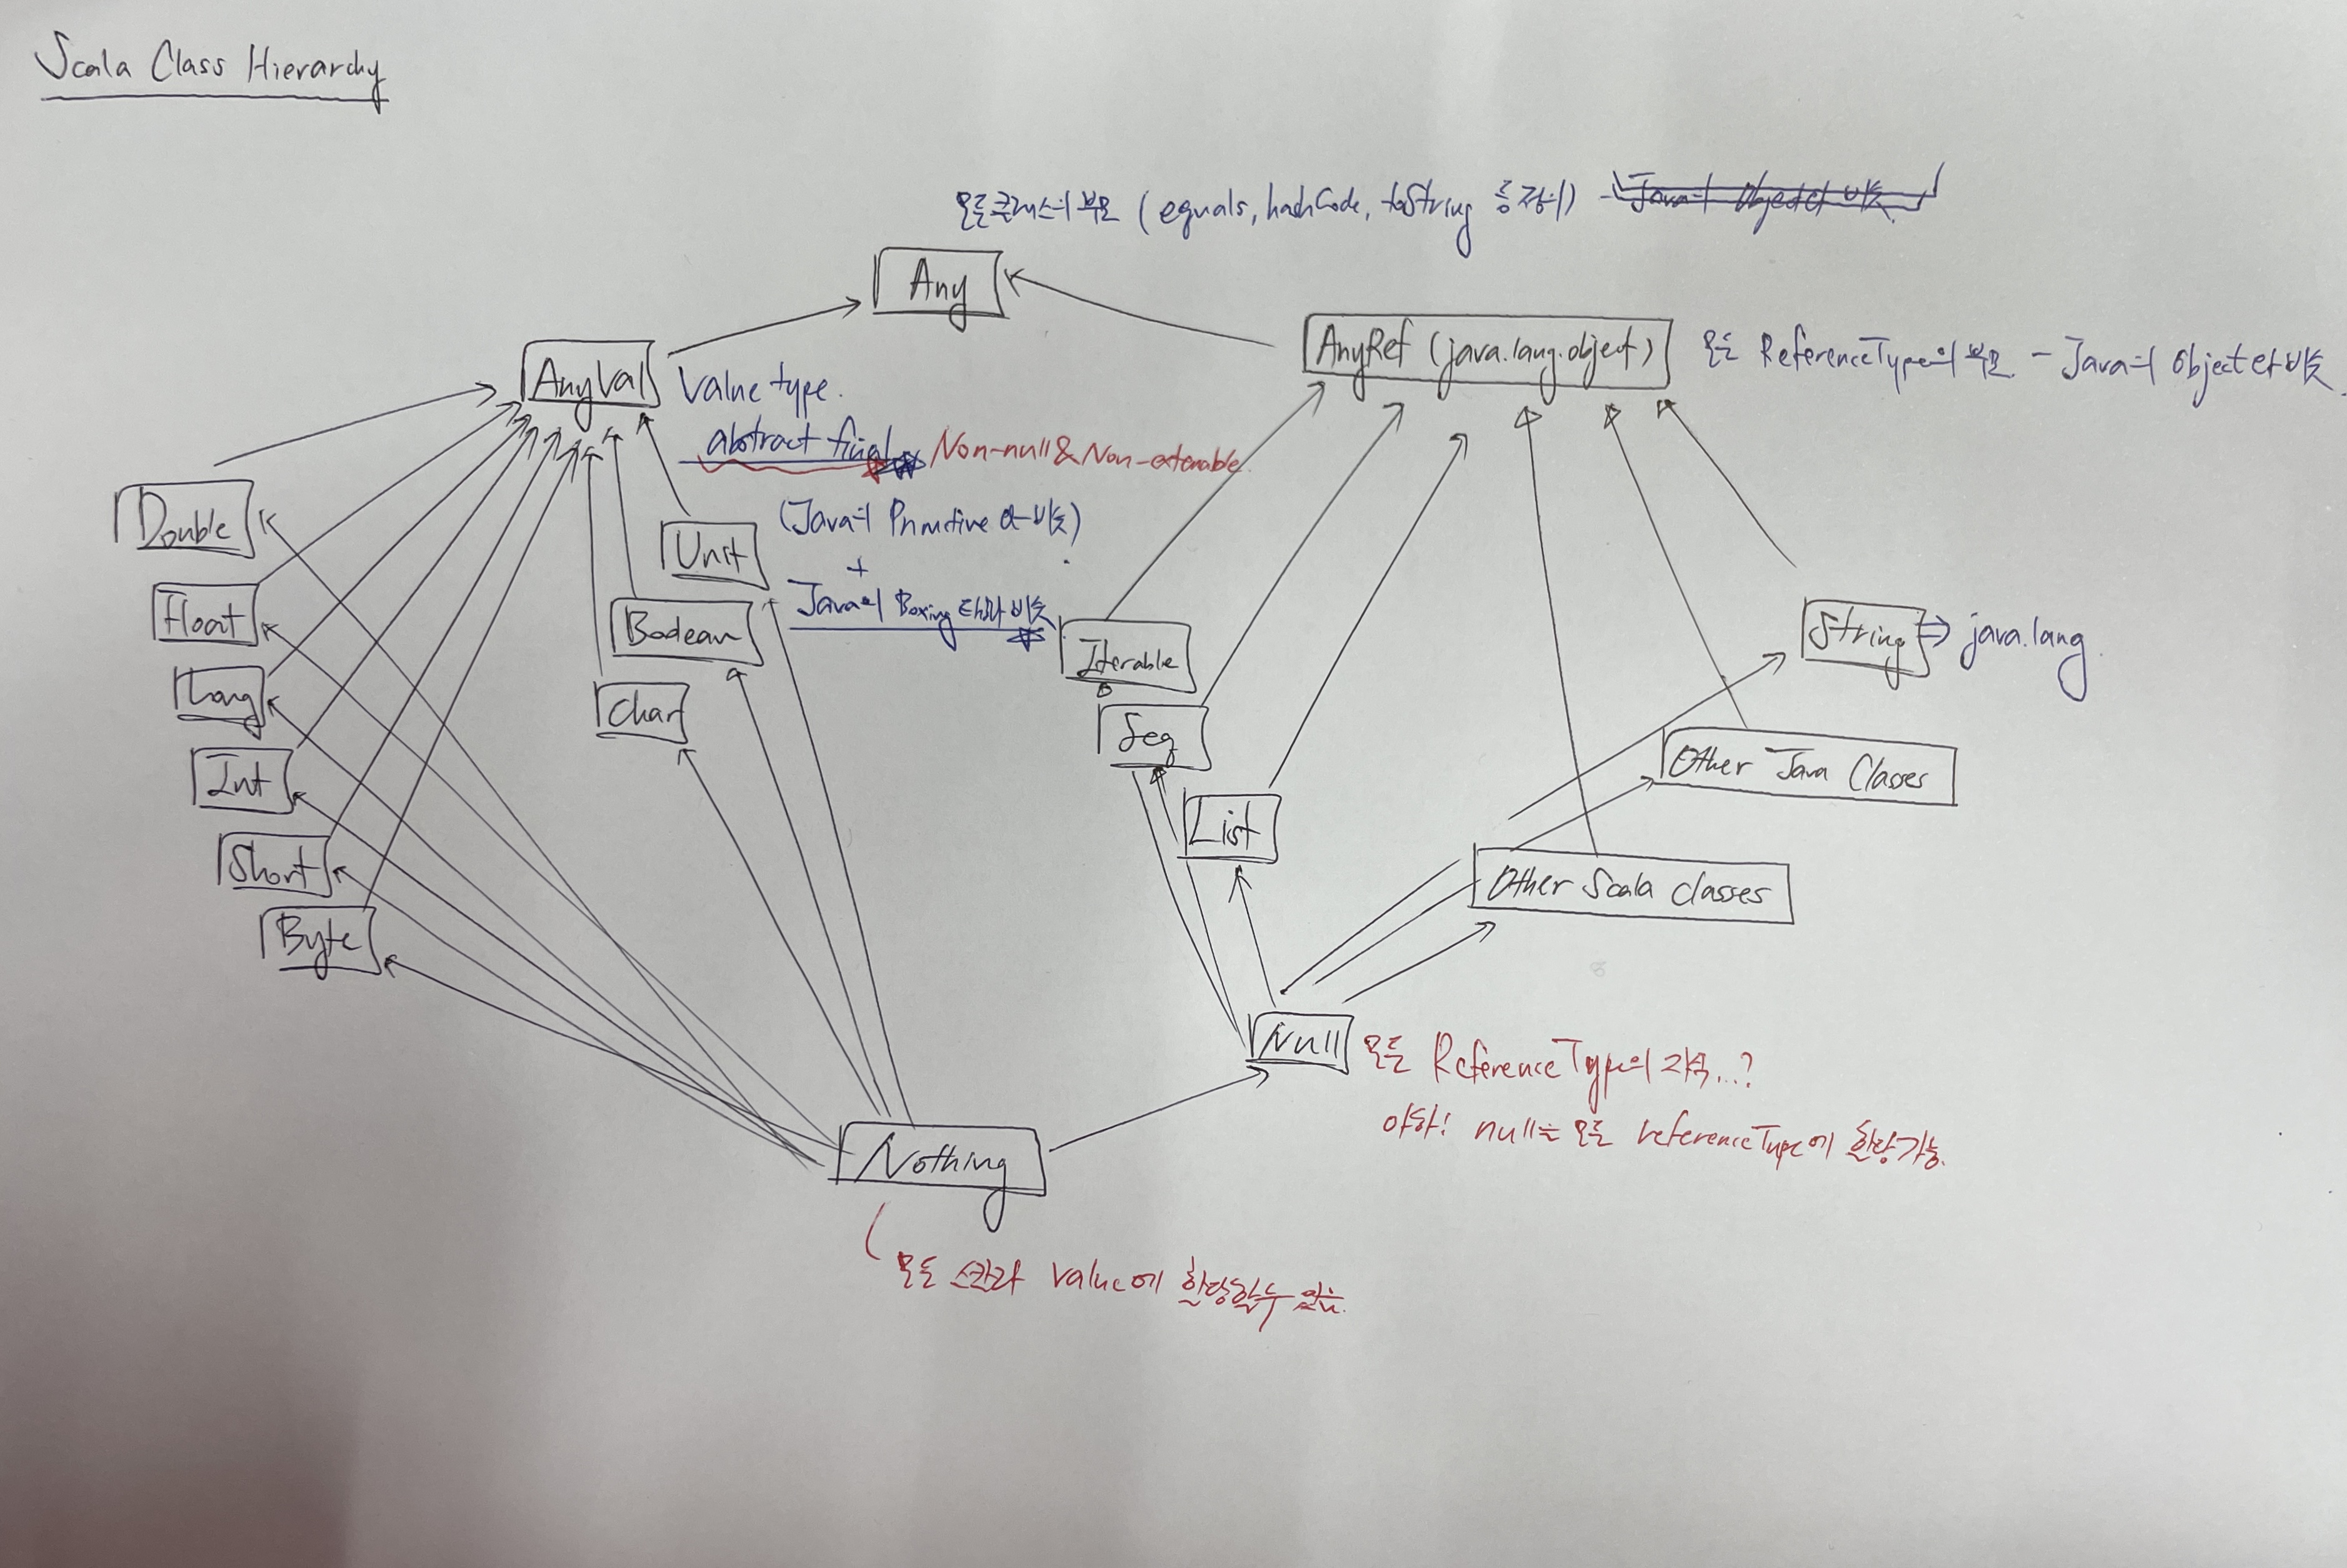 Scala Class Hierarchy
모든클래스의 부모 (equals, hashCode, toString 등 정의) - Java의 Object와 비슷.
Any
AnyVal
Value type.
AnyRef (java.lang.object)
모든 ReferenceType의 부모 - Java의 Object와 비슷.
abstract final
Non-null & Non-extenable.
Double
Unit
(Java의 Primitive 와 비슷)
+
Java의 Boxing 타입과 비슷
Float
Boolean
Iterable
String ⇒ java.lang.
Long
Char
Seq
Int
List
Other Java Classes
Short
Other Scala classes
Byte
Null
모든 ReferenceType의 자식...?
아하! null는 모든 referenceType에 할당가능.
Nothing
모든 스칼라 value에 할당할수 있음.